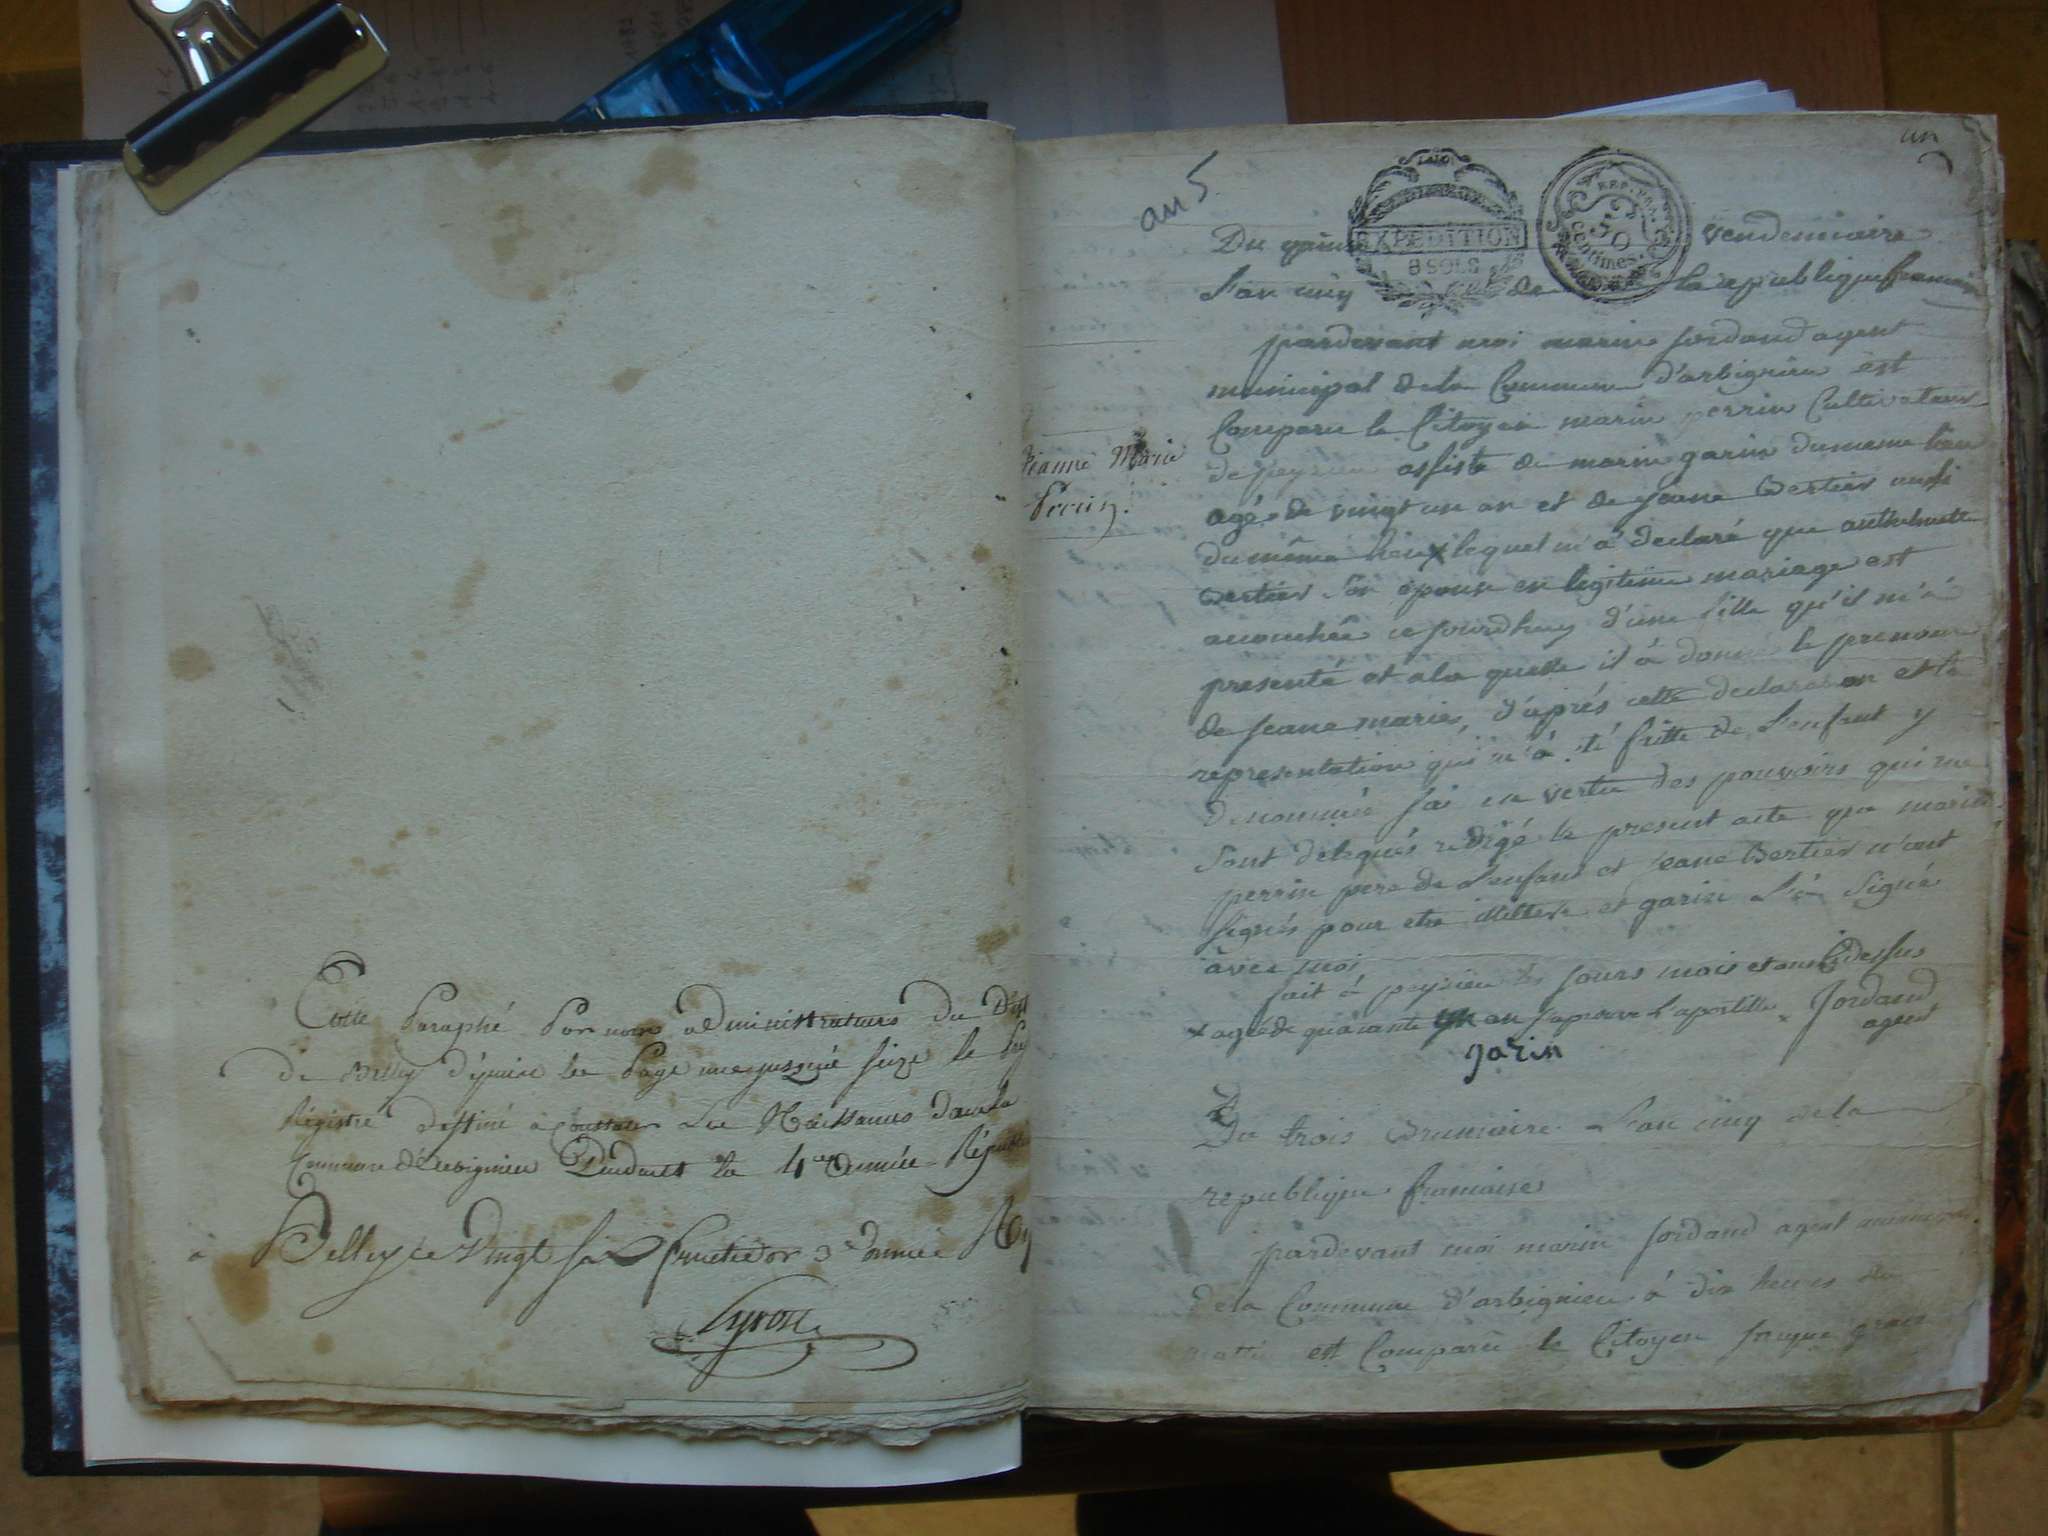 Cotté Paraphé Par nous administrateurs du Dist
de Belley depuis la Page une jusqué seize le
Régistre destiné à Constater Les Naissances dans la
Commune d'Arbignieu Pendant la 4e année Républi
à Belley le Vingt six fructidor 3e année
an 5
un
EXPEDITION
8 SOLS
REP. FRA.
50
centimes.
Du vendemiaire
L'an cinq de la republique francaise
pardevant moi marin Jordand agent
municipal de la Commune d'arbignieu est
Comparu le Citoyen marin perrin Cultivateur
Jeanne Marie
Perrin.
de peyzieu assisté de marin garin du meme lieu
agé de vingt un an et de jeane Bertier aussi
du même lieu x lequel m'a declaré que
Bertier son epouse en legitime mariage est
accouchée ce jourdhuy d'une fille qu'il m'a
presenté et a la quelle il à donné le prenom
de jeane marie, d'aprés cette declaration et la
representation qui m'à été faitte de L'enfant y
denommée jai en vertu des pouvoirs qui me
sont delegués redigé le present acte que marin
perrin pere de L'enfant et jeane Bertier n'ont
signés pour etre illiteré et garin L'à signé
àvec moi
fait à peyzieu les jours mois et an Cidessus
x agée de quarante un an japrouve L'apostille Jordand
agent
garin
Du trois Brumaire L'an cinq de la
republique francaise
pardevant moi marin Jordand agent municipal
de la Commune d'arbignieu à dix heures du
matin est Comparu le Citoyen